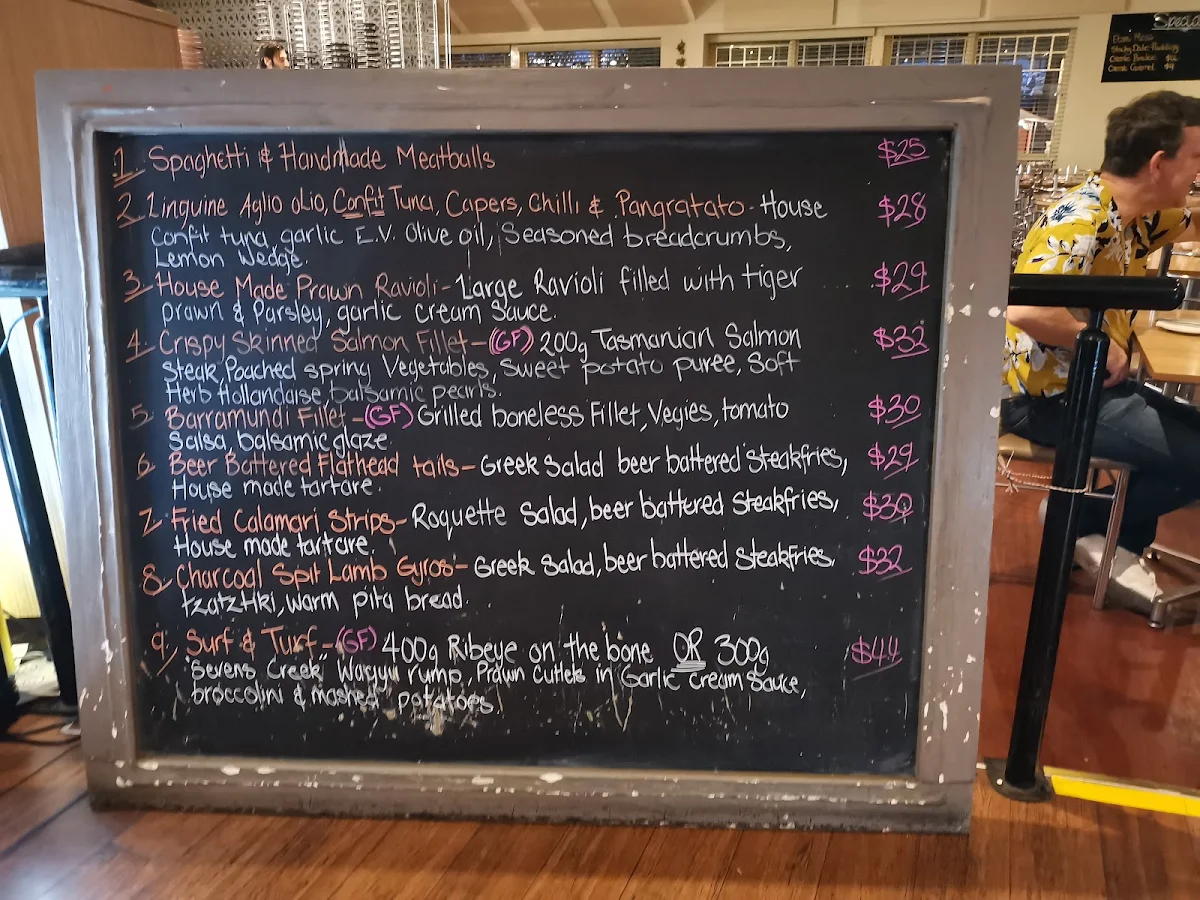 Specials
1. Spaghetti & Handmade Meatballs $25
2. Linguine Aglio olio, Confit Tuna, Capers, Chilli & Pangratato - House $28
Confit tuna, garlic E.V. Olive oil, Seasoned breadcrumbs,
Lemon Wedge.
3. House Made Prawn Ravioli - Large Ravioli filled with tiger $29
prawn & Parsley, garlic cream Sauce.
4. Crispy Skinned Salmon Fillet - (GF) 200g Tasmanian Salmon $32
Steak, Poached spring Vegetables, Sweet potato puree, Soft
Herb Hollandaise, balsamic pearls.
5. Barramundi Fillet - (GF) Grilled boneless Fillet, Vegies, tomato $30
Salsa, balsamic glaze
6. Beer Battered Flathead tails - Greek Salad beer battered Steakfries, $29
House made tartare.
7. Fried Calamari Strips - Roquette Salad, beer battered Steakfries, $30
House made tartare.
8. Charcoal Spit Lamb Gyros - Greek Salad, beer battered Steakfries, $32
tzatziki, warm pita bread.
9. Surf & Turf - (GF) 400g Ribeye on the bone OR 300g $44
"Sevens Creek" Wagyu rump, Prawn Cutlets in Garlic Cream Sauce,
broccolini & mashed potatoes